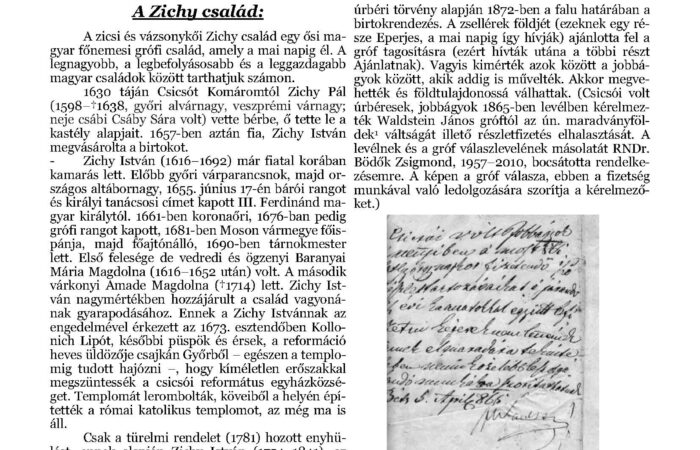 A Zichy család:
A zicsi és vázsonykői Zichy család egy ősi ma-
gyar főnemesi grófi család, amely a mai napig él. A
legnagyobb, a legbefolyásosabb és a leggazdagabb
magyar családok között tarthatjuk számon.
1630 táján Csicsót Komáromtól Zichy Pál
(1598–†1638, győri alvárnagy, veszprémi várnagy;
neje csábi Csáby Sára volt) vette bérbe, ő tette le a
kastély alapjait. 1657-ben aztán fia, Zichy István
megvásárolta a birtokot.
- Zichy István (1616–1692) már fiatal korában
kamarás lett. Előbb győri várparancsnok, majd or-
szágos altábornagy, 1655. június 17-én bárói rangot
és királyi tanácsosi címet kapott III. Ferdinánd ma-
gyar királytól. 1661-ben koronaőri, 1676-ban pedig
grófi rangot kapott, 1681-ben Moson vármegye főis-
pánja, majd főajtónálló, 1690-ben tárnokmester
lett. Első felesége de vedredi és ögzenyi Baranyai
Mária Magdolna (1616–1652 után) volt. A második
várkonyi Amade Magdolna (†1714) lett. Zichy Ist-
ván nagymértékben hozzájárult a család vagyoná-
nak gyarapodásához. Ennek a Zichy Istvánnak az
engedelmével érkezett az 1673. esztendőben Kollo-
nich Lipót, későbbi püspök és érsek, a reformáció
heves üldözője csajkán Győrből – egészen a templo-
mig tudott hajózni –, hogy kíméletlen erőszakkal
megszüntessék a csicsói református egyházközsé-
get. Templomát lerombolták, köveiből a helyén épí-
tették a római katolikus templomot, az még ma is
áll.
Csak a türelmi rendelet (1781) hozott enyhü-
úrbéri törvény alapján 1872-ben a falu határában a
birtokrendezés. A zsellérek földjét (ezeknek egy ré-
sze Eperjes, a mai napig így hívják) ajánlotta fel a
gróf tagosításra (ezért hívták utána a többi részt
Ajánlatnak). Vagyis kimérték azok között a jobbá-
gyok között, akik addig is művelték. Akkor megve-
hették és földtulajdonossá válhattak. (Csicsói volt
úrbéresek, jobbágyok 1865-ben levélben kérelmez-
ték Waldstein János gróftól az ún. maradványföl-
dek¹ váltságát illető részletfizetés elhalasztását. A
levélnek és a gróf válaszlevelének másolatát RNDr.
Bödők Zsigmond, 1957–2010, bocsátotta rendelke-
zésemre. A képen a gróf válasza, ebben a fizetség
munkával való ledolgozására szorítja a kérelmező-
ket.)